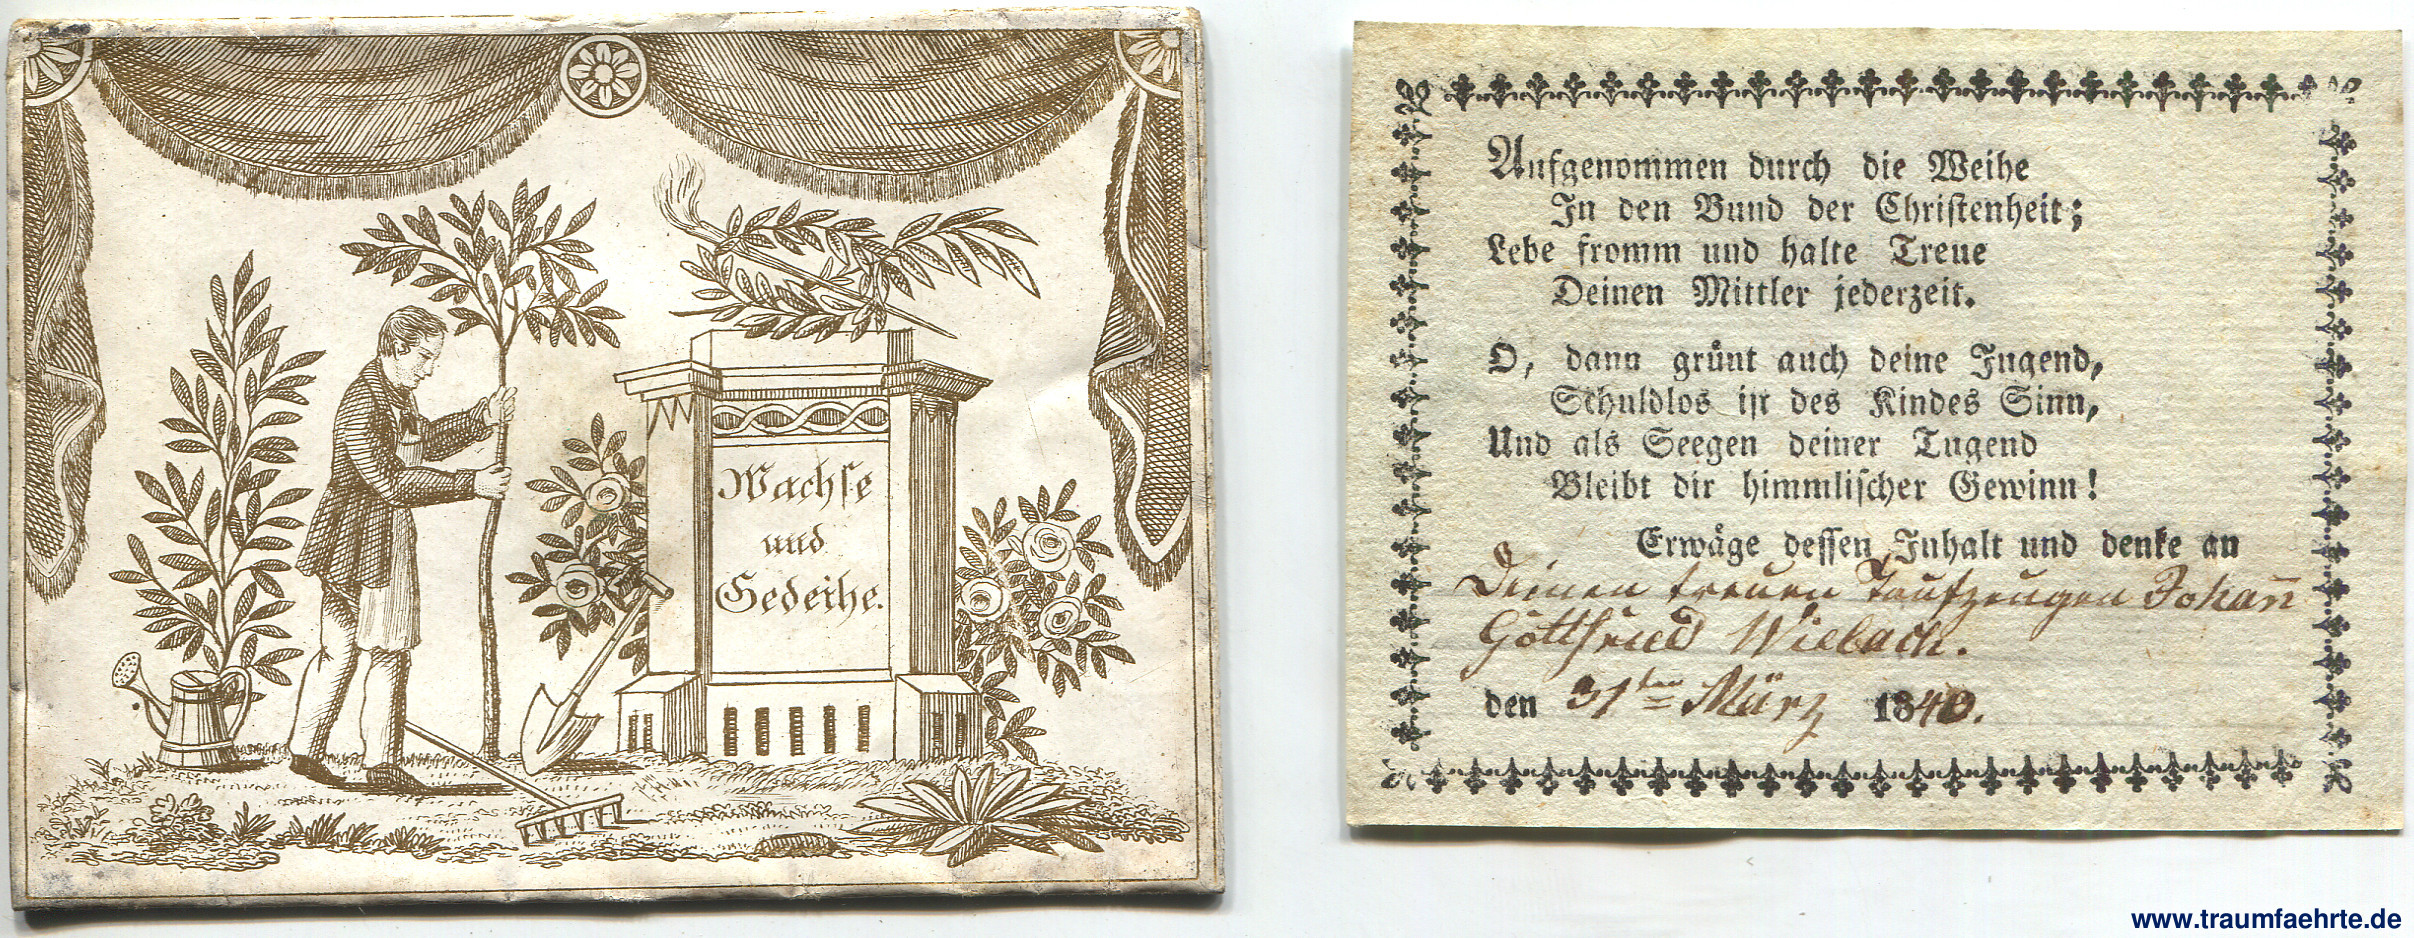 Wachse
und
Gedeihe.
Aufgenommen durch die Weihe
In den Bund der Christenheit;
Lebe fromm und halte Treue
Deinen Mittler jederzeit.
O, dann grünt auch deine Jugend,
Schuldlos ist des Kindes Sinn,
Und als Seegen deiner Tugend
Bleibt dir himmlischer Gewinn!
Erwäge dessen Inhalt und denke an
Deinen treuen Taufzeugen Johan̄
Gottfried Wiebach.
den 31ten März 1840.
www.traumfaehrte.de